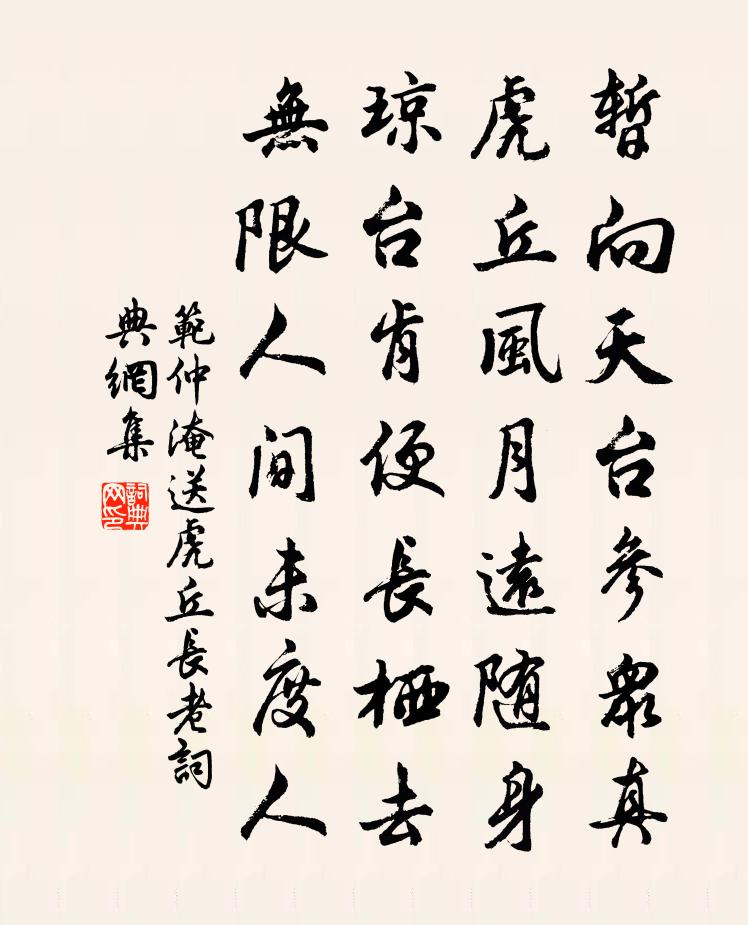 暫向天台參衆真
虎丘風月遠随身
琼台肯便長栖去
無限人间未度人
範仲淹送虎丘長老詞
典網集
詞典网印